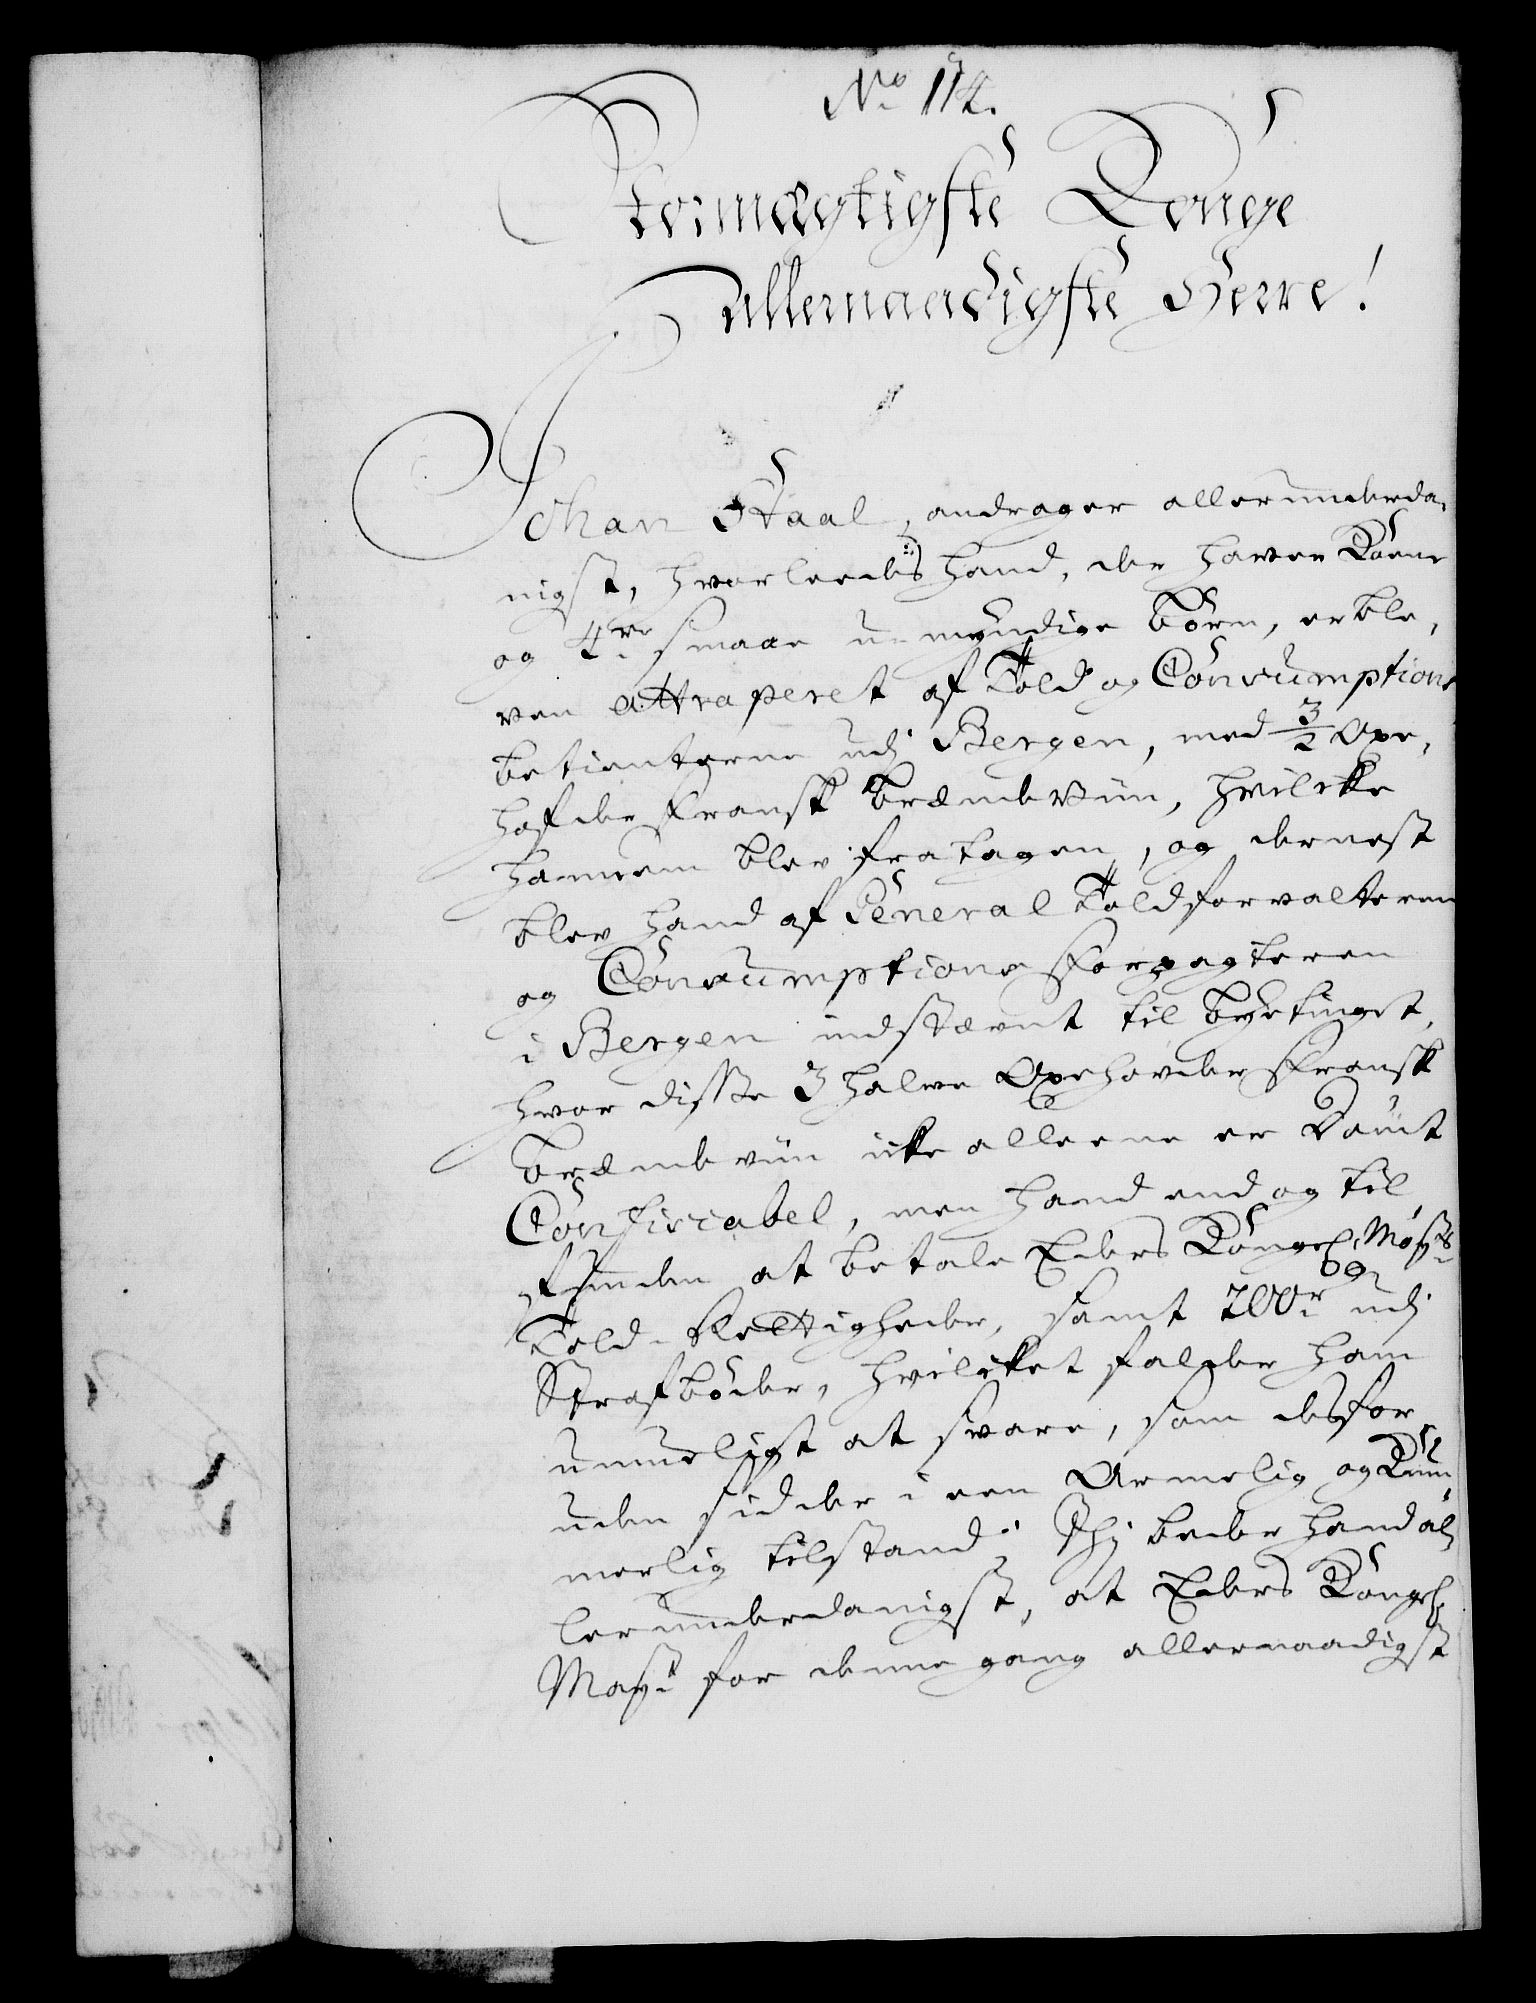 No. 114.
Stormægtigste Konge
allernaadigste Herre!
Johan Staal, andrager allerunderda,
nigst, hvorleedes hand, der haver Kone
og 4re smaae u-myndige børn, er ble,
ven attraperet af Told og Consumptions
betienterne udj Bergen, med 3/2 Oxe,
hofder Fransk brændeviin, hvilcke
hannem blev fratagen, og dernest
blev hand af General Toldforvalteren
og Consumptions Forpagteren
i Bergen indstævnt til byetinget,
hvor disse 3 halve Oxehovder Fransk
brændeviin icke alleene er Dømt
Confiscabel, men hand end og til
funden at betale Eders Kongel. Mayts
Told-Rettigheder, samt 200r udj
Strafbøder, hvilcket falder ham
umueligt at svare, som desfor
uden sidder i een Armelig og Kum
merlig tilstand; Thj beder hand al,
lerunderdanigst, at Eders Kongel.
Mayt. for denne gang allernaadigst